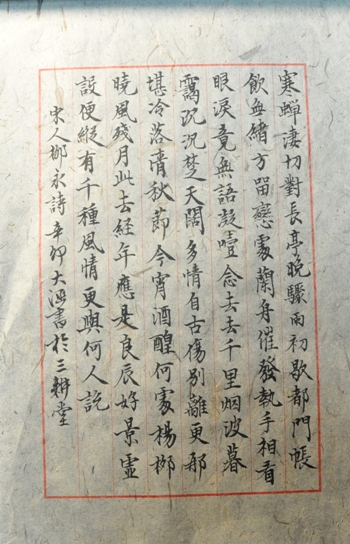 寒蟬淒切對長亭晚驟雨初歇都門帳
飲無緒方留戀處蘭舟催發執手相看
眼淚竟無語凝噎念去去千里烟波暮
靄沉沉楚天闊多情自古傷別離更那
堪冷落清秋節今宵酒醒何處楊柳
曉風殘月此去經年應是良辰好景虛
設便縱有千種風情更與何人說
宋人柳永詩辛卯大書於三耕堂